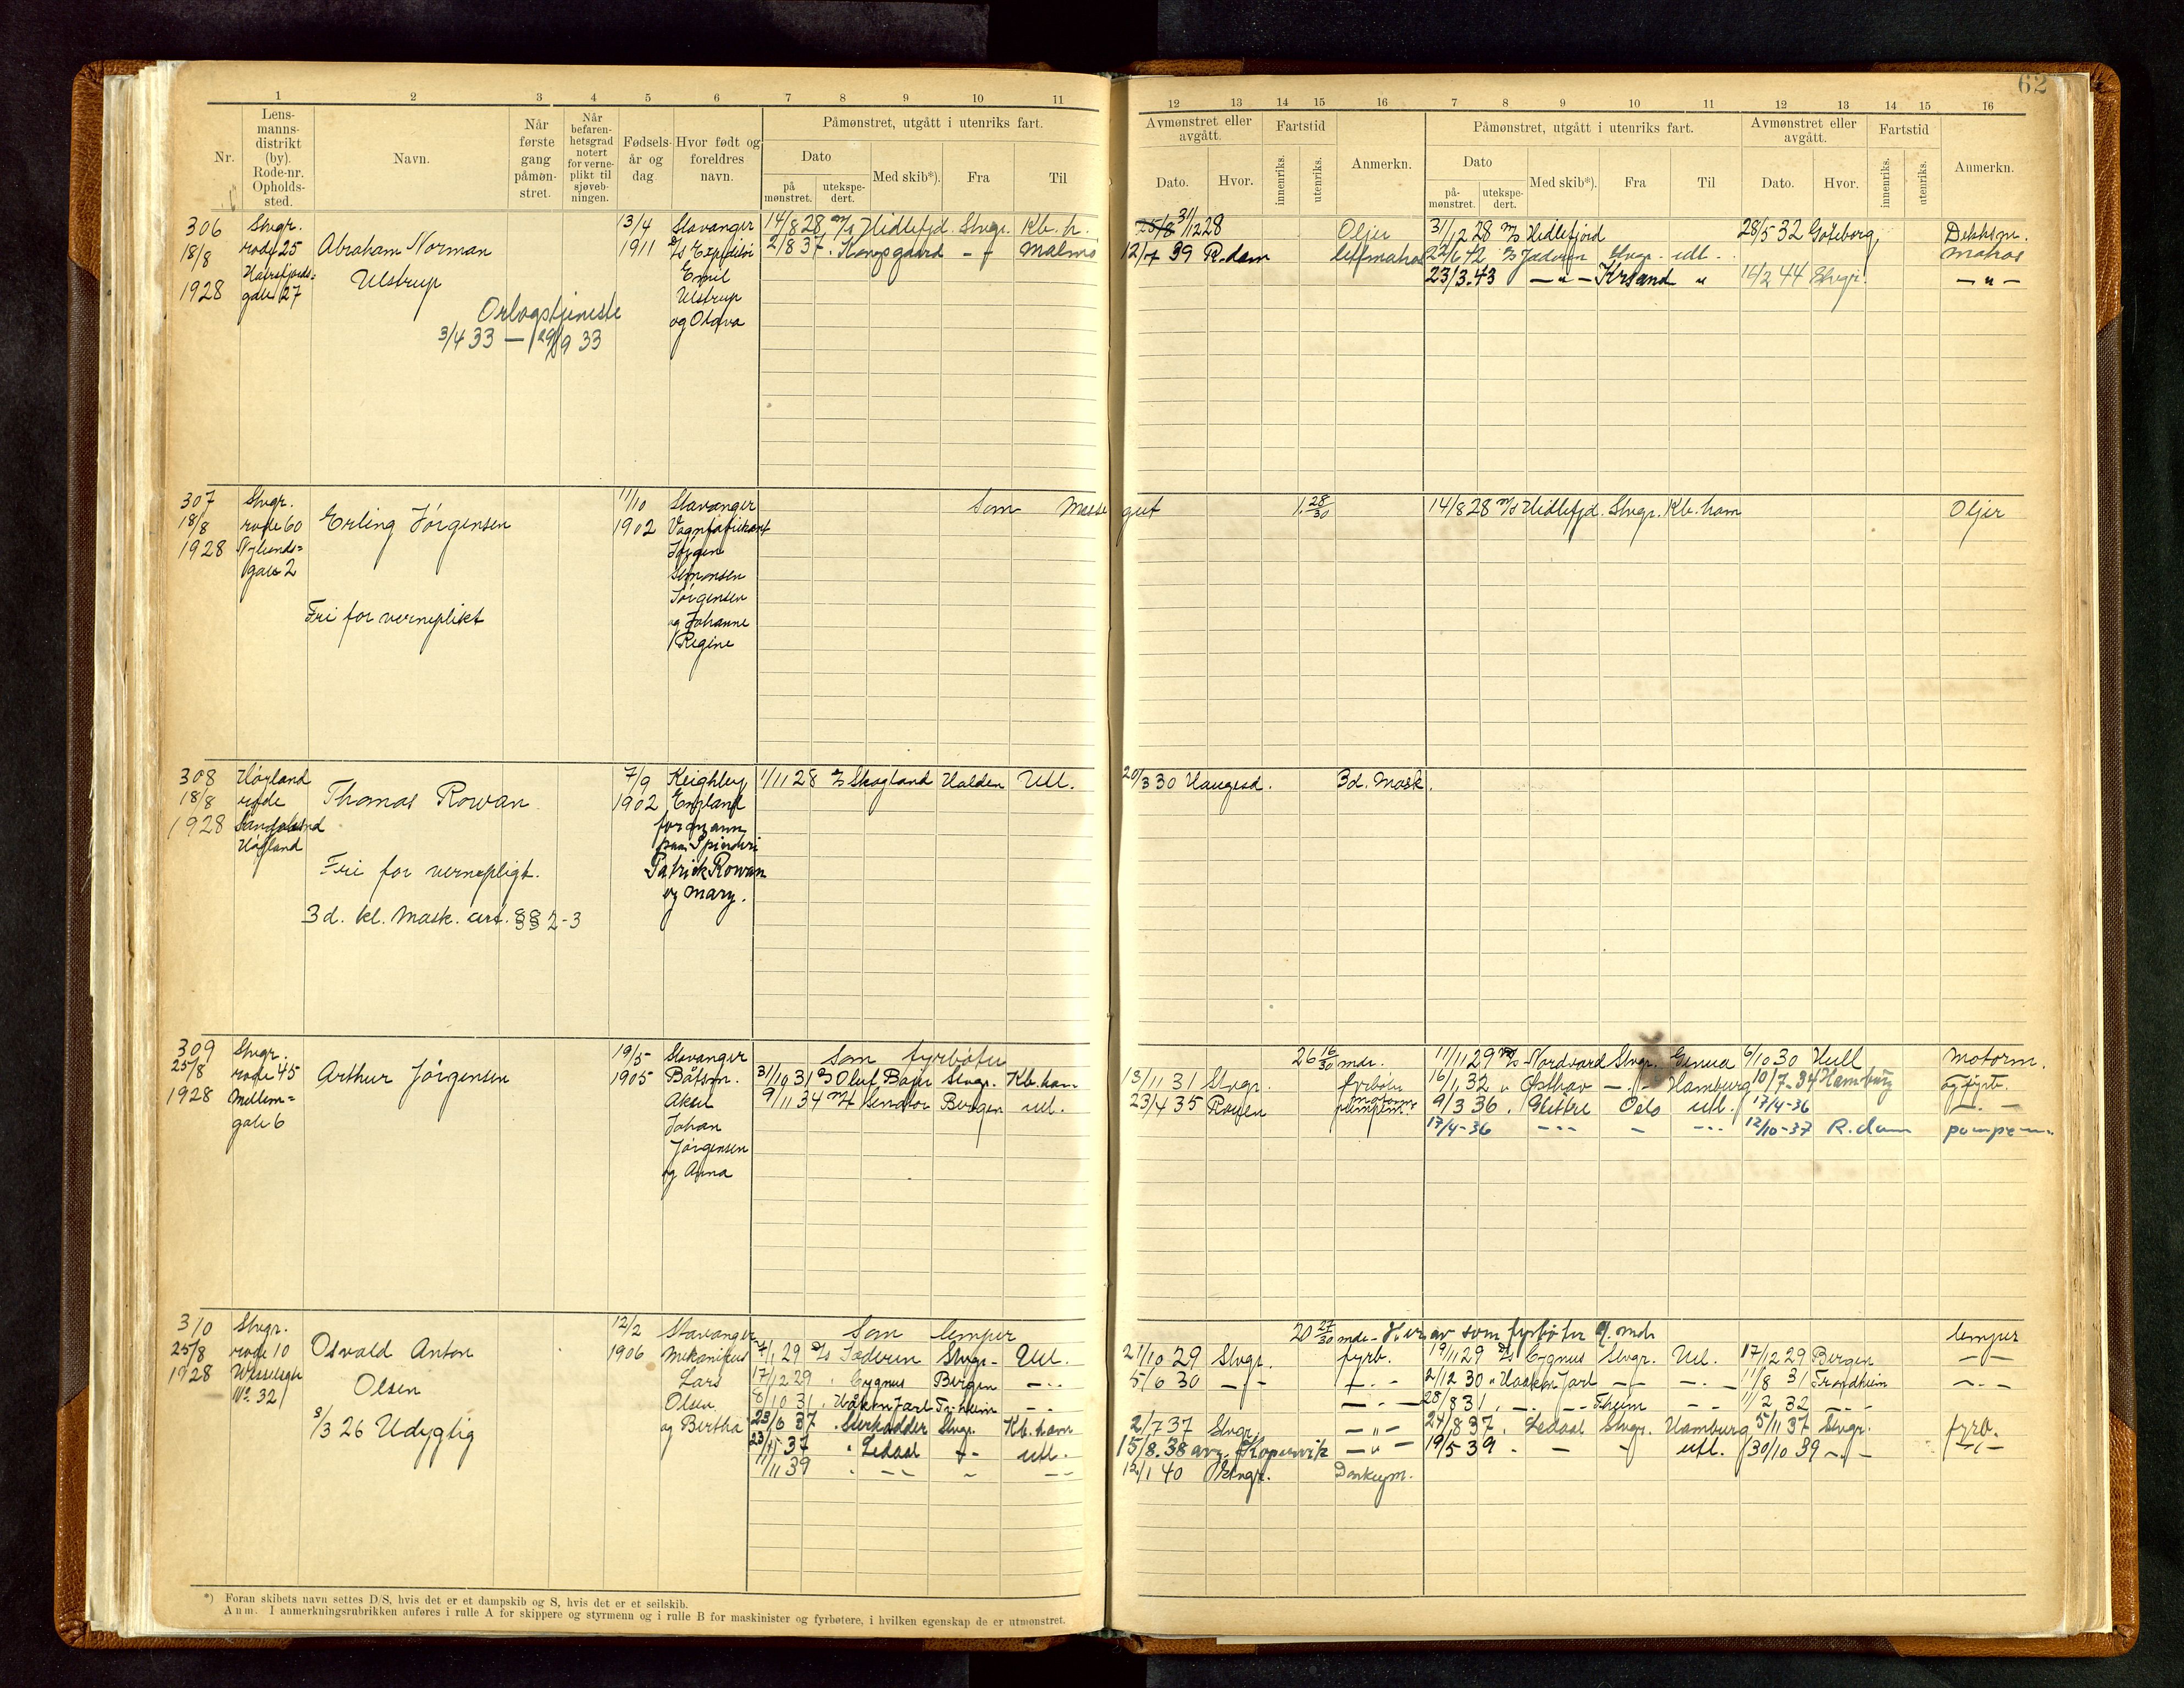 62
1 2 3 4 5 6 7 8 9 10 11
Nr.
Lens-
manns-
distrikt
(by).
Rode-nr.
Opholds-
sted.
Navn.
Når
første
gang
påmøn-
stret.
Når
befaren-
hetsgrad
notert
for verne-
plikt til
sjøveb-
ningen.
Fødsels-
år og
dag
Hvor født og
foreldres
navn.
Påmønstret, utgått i utenriks fart.
Dato
på
mønstret.
utekspe-
dert.
Med skib*).
Fra
Til
12 13 14 15 16 7 8 9 10 11 12 13 14 15 16
Avmønstret eller
avgått.
Dato. Hvor.
Fartstid
innenriks. utenriks.
Anmerkn.
Påmønstret, utgått i utenriks fart.
Dato
på-
mønstret.
utekspe-
dert.
Med skib*). Fra Til
Avmønstret eller
avgått.
Dato. Hvor.
Fartstid
innenriks. utenriks.
Anmerkn.
306
18/8
1928
Stvgr.
rode 25
gate 27
Abraham Norman
Ulstrup
Orlogstjeneste
3/4 33 — 29/9 33
13/4
1911
Stavanger
Emil
Ulstrup
og Olava
14/8 28 M/S Hidlefjd. Stvgr. Kb. h.
2/8 37 Malmö
25/8 31/12 28 Oljer
12/7 39 R.dam lettmatros
31/12 28 M/S Hidlefjord 28/5 32 Göteborg Dekksm.
22/6 42 Stvgr. utl. Matros
23/3.43 — " — Krsand " 14/2 44 Stvgr. — " —
307
18/8
1928
Stvgr.
rode 60
Nylunds=
gate 2
Erling Jørgensen
Fri for verneplikt
11/10
1902
Stavanger
Vognfabrikant
Jørgen
Simonsen
Jørgensen
og Johanne
Regine
Som Messe gut 1 28/30
14/8 28 M/S Hidlefjd. Stvgr. Kb. havn Oljer
308
18/8
1928
Høyland
rode
Høyland
Thomas Rowan
Fri for vernepligt.
3d. kl. Mask. cert. §§ 2-3
7/9
1902
Keighley
England
formann
Patrick Rowan
og Mary.
1/11 28 D/S Skogland Halden Utl.
20/3 30 Haugesd. 3d. Mask.
309
25/8
1928
Stvgr.
rode 45
Mellem=
gate 6
Arthur Jørgensen
19/5
1905
Stavanger
Båtsm.
Aksel
Johan
Jørgensen
og Anna
Som fyrbøter
31/10 31 D/S Oluf Stvgr. Kb. havn
9/11 34 M/T Senator Bergen utl.
26 16/30 mdr.
13/11 31 Stvgr. fyrbøter
23/4 35 Rouen pumpem.
11/11 29 M/S Nordvard Stvgr. Genua 6/10 30 Hull Motorm.
16/1 32 " Østhav — " — Hamburg 10/7-34 Hamburg og fyrb.
9/3 36 . Glittre Oslo utl. 17/4-36 — . —
17/4-36 - - - - - - - 12/10-37 R.dam pumpem.
310
25/8
1928
Stvgr.
rode 10
Wesselsgt.
No. 32
Osvald Anton
Olsen
8/3 26 Udygtig
12/2
1906
Stavanger
Mekanikus
Lars
Olsen
og Bertha
Som lemper
7/1 29 D/S Jæderen Stvgr. Utl.
17/12 29 " Cygnus Bergen — . .
8/10 31 . Håkon Jarl Tr.heim — . .
23/6 37 . Sverkadder Stvgr. Kb. havn
23/11 37 " Ledaal — " — utl.
11/11 39 . — — — — —
20 27/30 mdr. Herav som fyrbøter 9 mdr lemper
21/10 29 Stvgr. fyrb.
5/6 30 — " — — . . —
— . . —
2/7 37 Stvgr. — " —
15/8.38 avg. Kopervik — " —
12/1 40 Stvgr. Donkeym.
19/11 29 D/S Cygnus Stvgr. Utl. 17/12 29 Bergen — " —
2/12 30 " Haakon Jarl — " — — . . — 11/8 31 Trondheim — . . —
28/8 31 . — . . — Th.eim — . . — 11/2 32 — . . —
24/8 37 . Ledaal Stvgr. Hamburg 5/11 37 Stvgr. fyrb.
19/5 39 - — — utl. 30/10 39 — " — — " —
*) Foran skibets navn settes D/S, hvis det er et dampskib og S, hvis det er et seilskib.
Anm. I anmerkningsrubrikken anføres i rulle A for skippere og styrmenn og i rulle B for maskinister og fyrbøtere, i hvilken egenskap de er utmønstret.